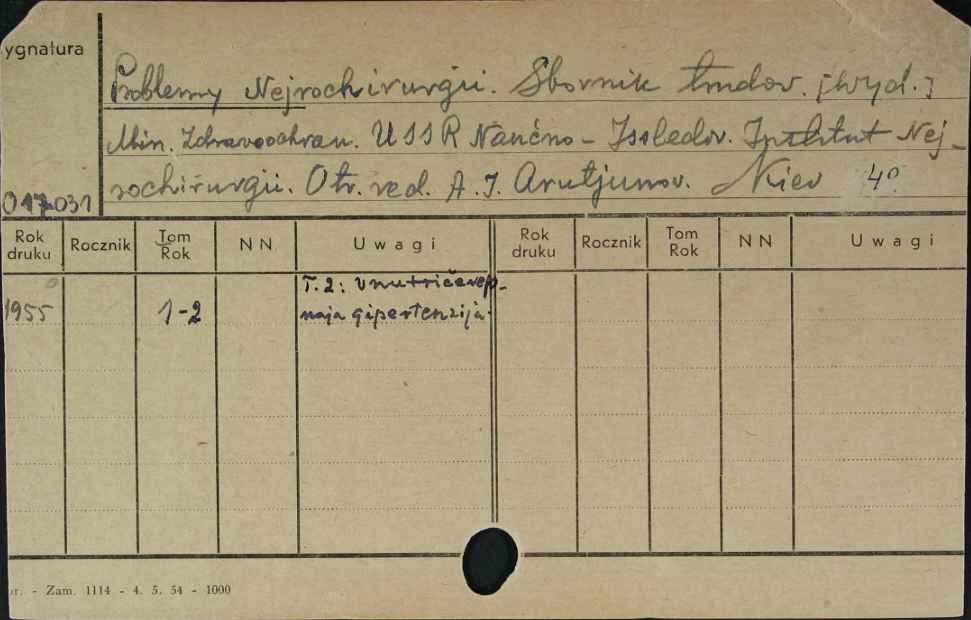 ygnatura
Problemy Nejrochirurgii. Sbornik trudov. [Wyd.]
Min. Zdravoochran. USSR Naučno-Issledov. Institut Nej-
rochirurgii. Otv. red. A.I. Arutjunov. Kiev 4º
017031
Rok druku Rocznik Tom Rok NN Uwagi Rok druku Rocznik Tom Rok NN Uwagi
T. 2: Vnutričerep-
1955 1-2 naja gipertenzija.
r. - Zam. 1114 - 4. 5. 54 - 1000